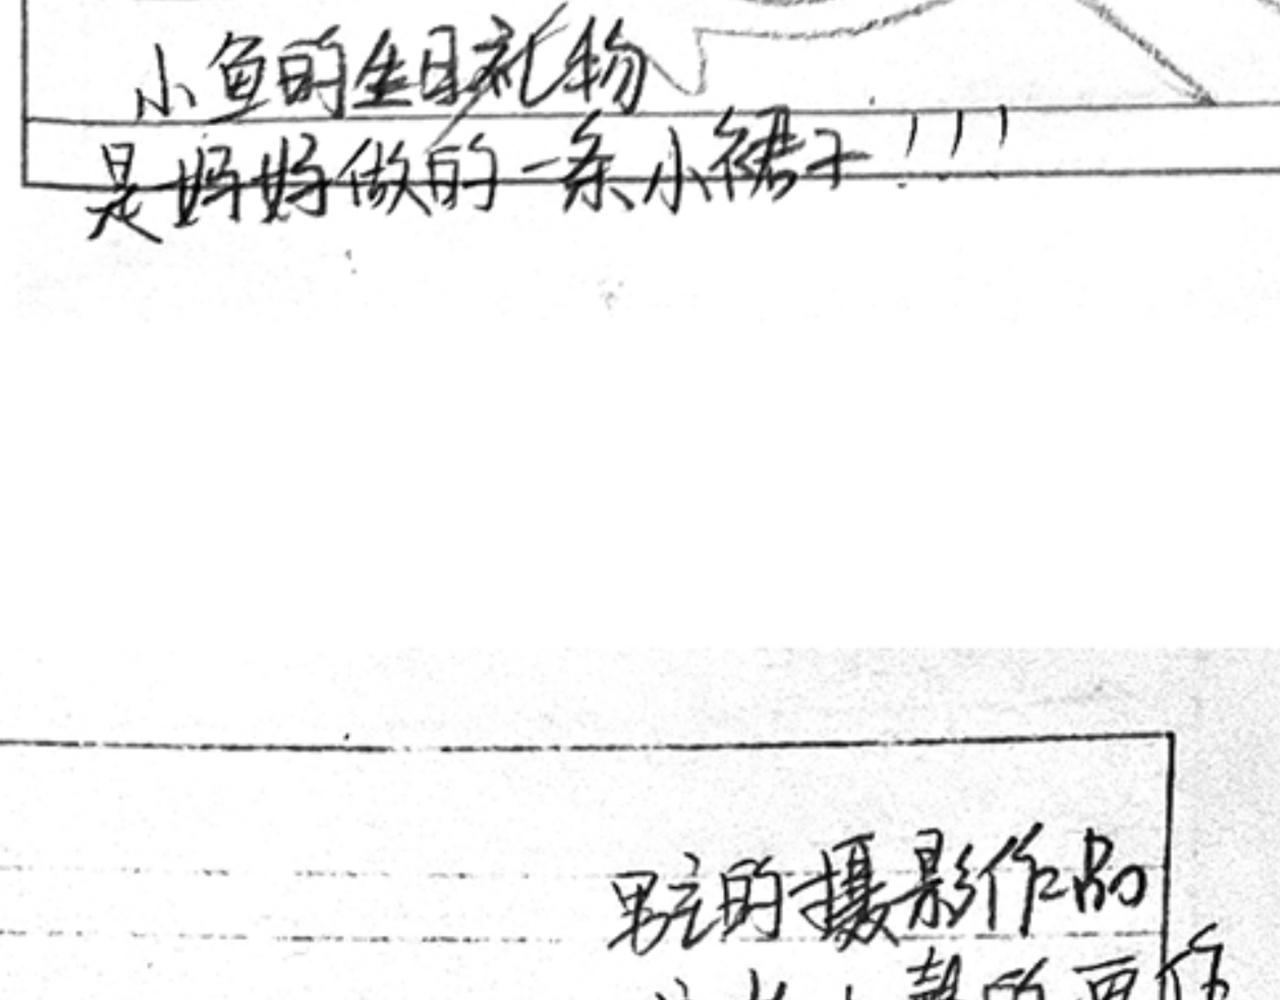 小鱼的生日礼物
是妈妈做的一条小裙子!!!
男主的摄影作品
的画作